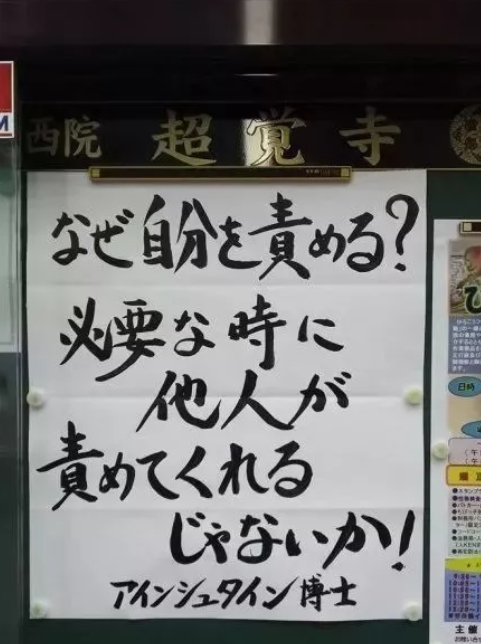 西院 超覚寺
なぜ自分を責める?
必要な時に
他人が
責めてくれる
じゃないか!
アインシュタイン博士
日時
主催